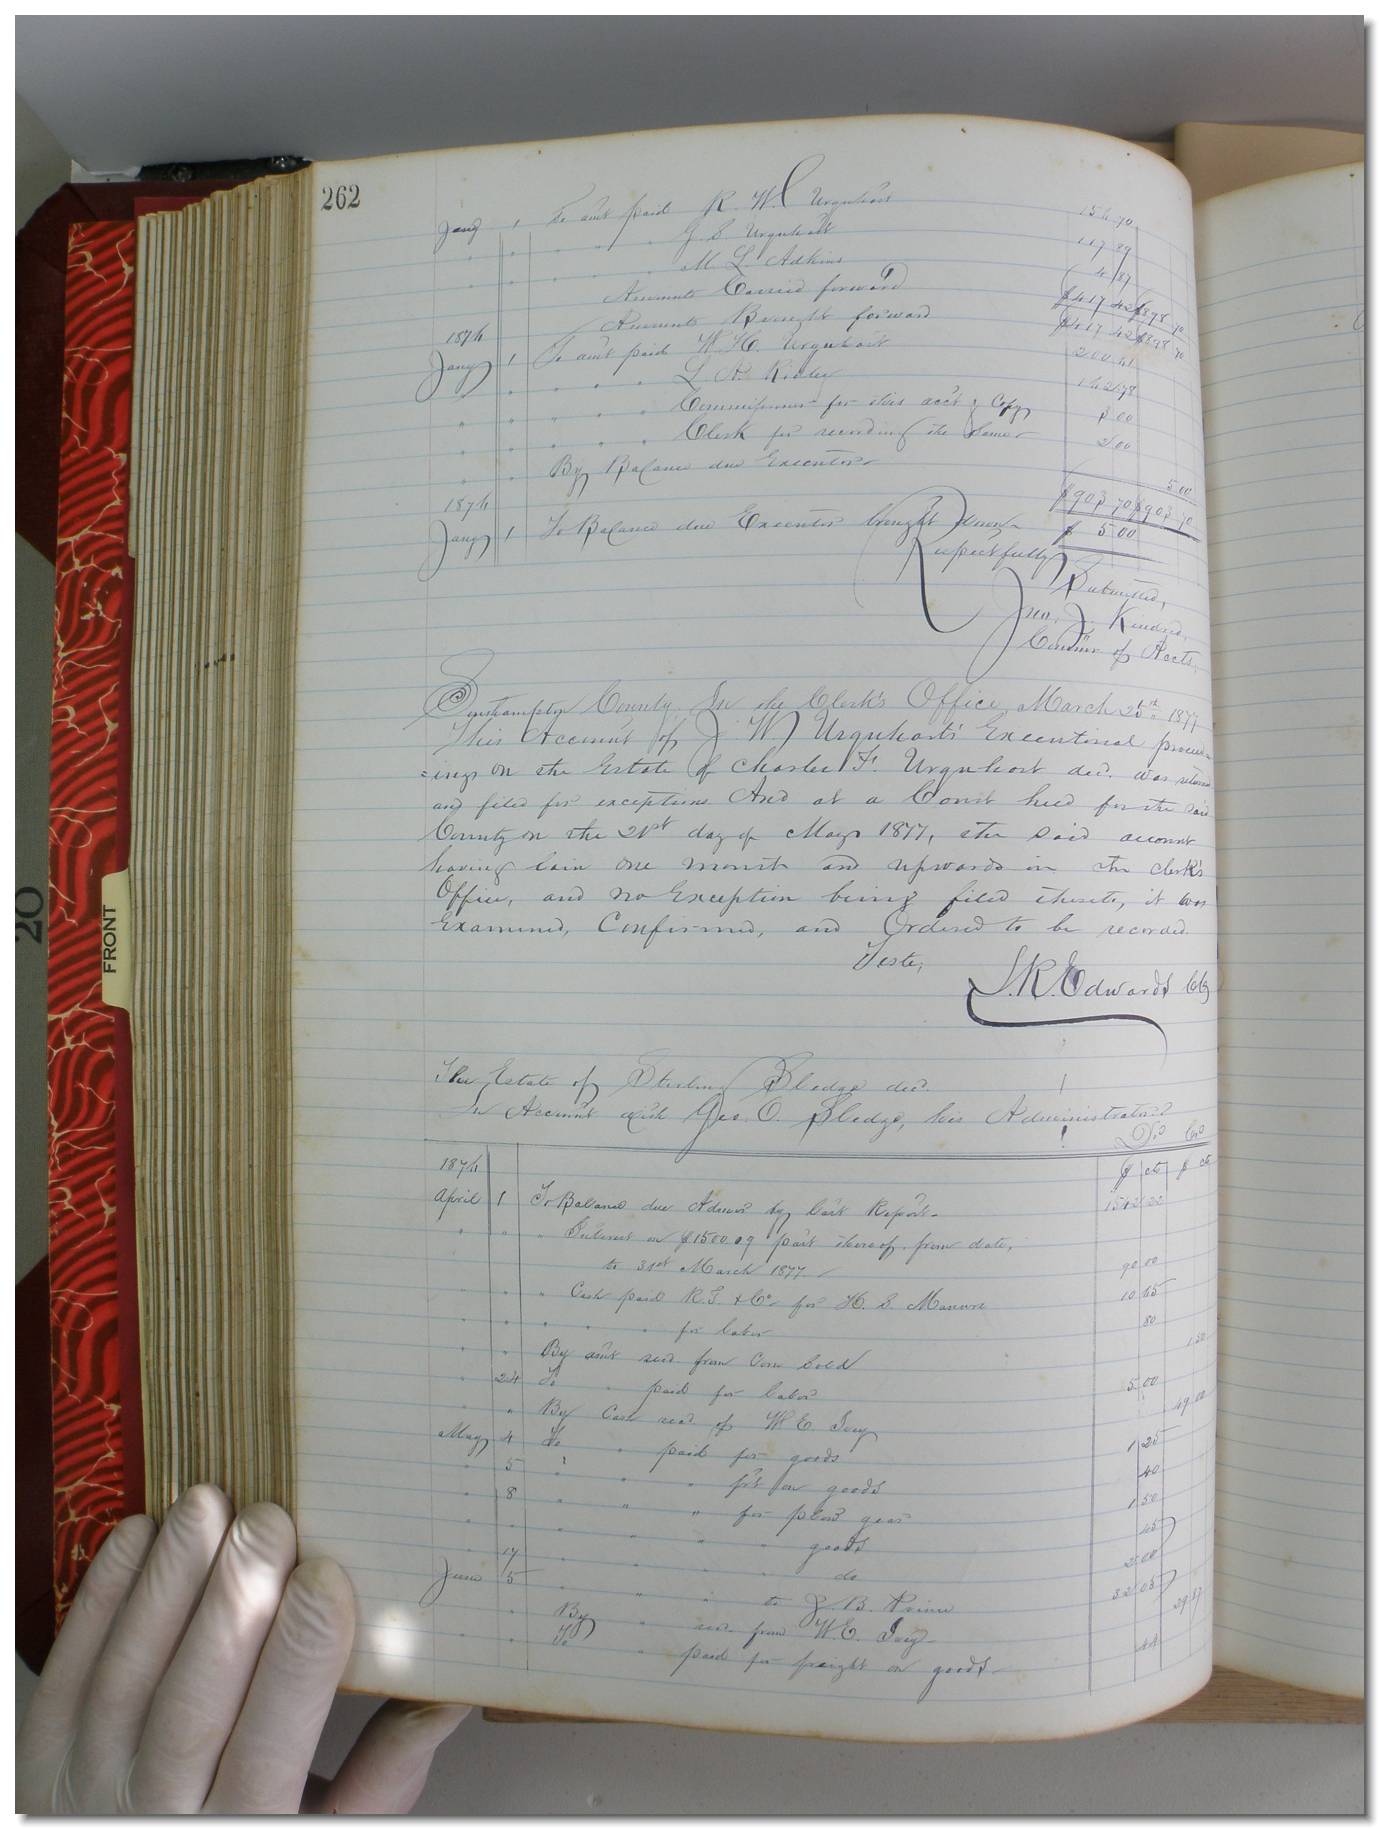 262
Jany 1 To amt paid R. W. Urquhart 154 70
" " " " " G. S. Urquhart 117 89
" " " " " M. L. Adkins 4 87
Amounts Carried forward $417 42 $898 70
Amounts Brought forward $417 42 $898 70
1876
Jany 1 To amt paid W. H. Urquhart 200
" " " " " L. R.
" " " " " Commissioner for this acct & Copy 00
" " " " " Clerk for recording the Same 2 00
" " By Balance due Executor 5 00
$903 70 $903 70
1876
Jany 1 To Balance due Executor brought down $ 5 00
Respectfully
Submitted,
Jno. J. Kindred,
Commr of Accts.
Southampton County. In the Clerk's Office, March 25th 1877
This Account of J. W. Urquhart's Executorial proceed
=ings on the Estate of Charles F. Urquhart dec. was returned
and filed for exceptions And at a Court held for the said
County on the 21st day of May 1877, the said account
having lain one month and upwards in the Clerk's
Office, and no Exception being filed thereto, it was
Examined, Confirmed, and Ordered to be recorded.
Teste,
L. R. Edwards Clk
The Estate of Sterling Sledge dec.
In Account with Geo. O. Sledge, his Administrator
Dr. Cr.
1876 $ cts $ cts
April 1 To Balance due Admor by last Report 1542 22
" " " Interest on $1500.09 part thereof from date,
to 31st March 1877. 90 00
" " " Cash paid R. T. & Co. for H. S. 10 65
" " " " " for labor 80
" " By amt recd from Corn Sold 1.20
" 24 To " paid for labor 5 00
" " By Cash recd of W. E. Ivey 49 00
May 4 To " paid for goods 1 25
" 5 " " " frt on goods 40
" 8 " " " for plow gear 1 50
" " " " " " goods 45
" 17 " " " " do 2 00
June 5 " " " to J. B. Prince 32 05
" " By " recd from W. E. Ivey 29 37
" " To " paid for freight on goods 44
FRONT
20